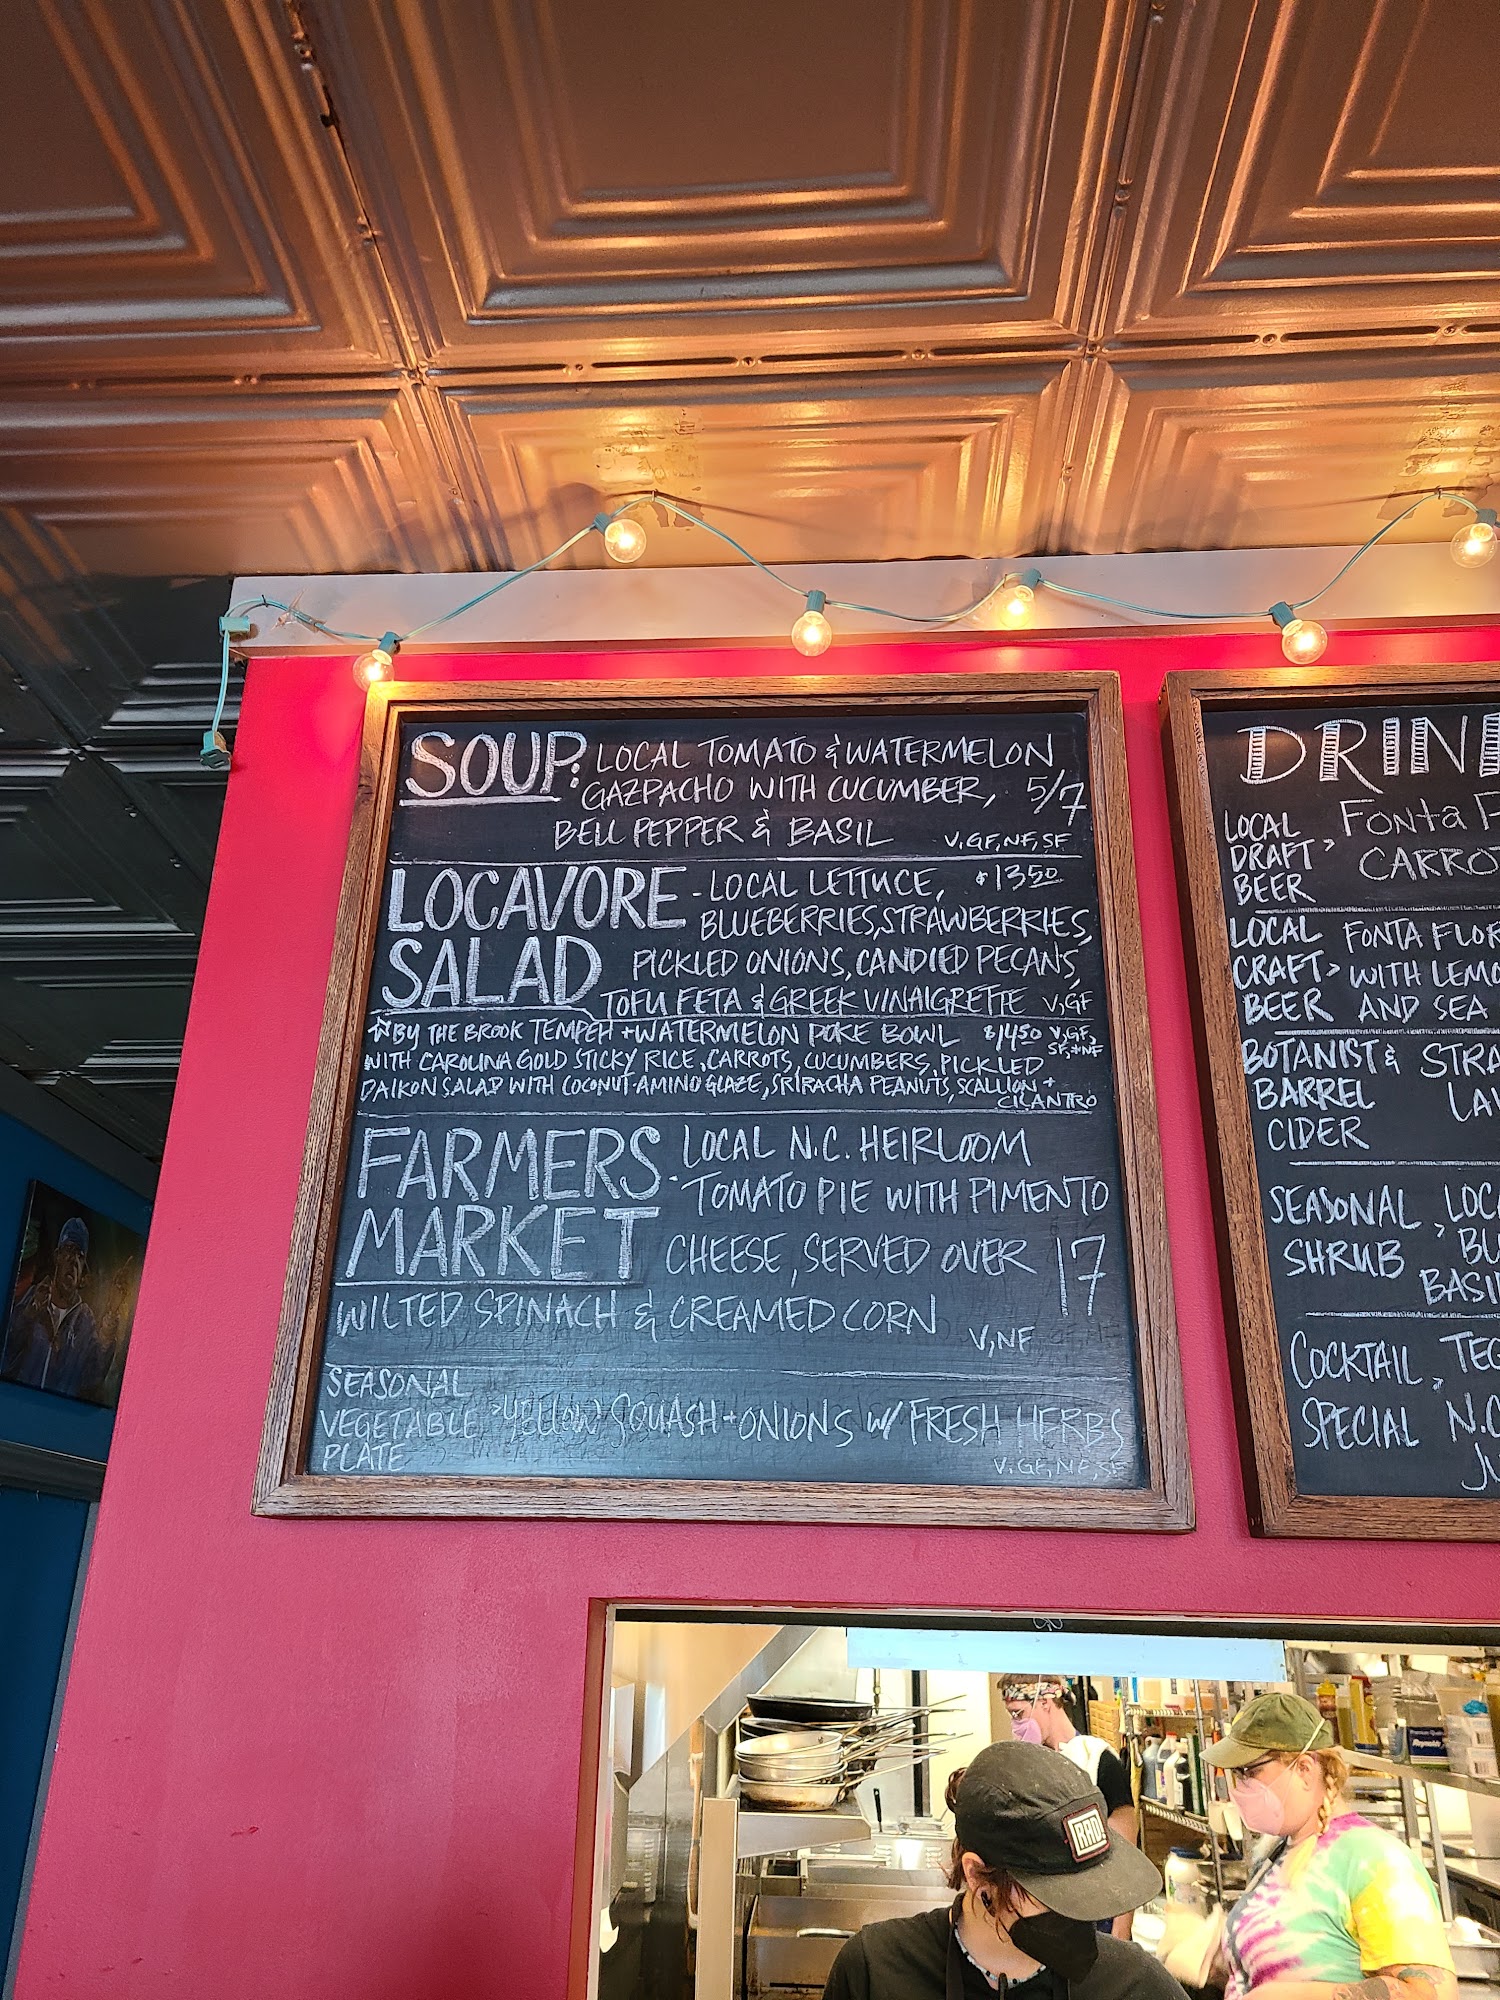 SOUP: LOCAL TOMATO & WATERMELON
GAZPACHO WITH CUCUMBER, 5/7
BELL PEPPER & BASIL V, GF, NF, SF
LOCAVORE - LOCAL LETTUCE, $13.50
BLUEBERRIES, STRAWBERRIES,
SALAD PICKLED ONIONS, CANDIED PECANS,
TOFU FETA & GREEK VINAIGRETTE V, GF
☆BY THE BROOK TEMPEH + WATERMELON POKE BOWL $14.50 V, GF,
SF, *NF
WITH CAROLINA GOLD STICKY RICE, CARROTS, CUCUMBERS, PICKLED
DAIKON SALAD WITH COCONUT-AMINO GLAZE, SRIRACHA PEANUTS, SCALLION +
CILANTRO
FARMERS - LOCAL N.C. HEIRLOOM
TOMATO PIE WITH PIMENTO
MARKET CHEESE, SERVED OVER 17
WILTED SPINACH & CREAMED CORN
V, NF
SEASONAL
VEGETABLE > YELLOW SQUASH + ONIONS W/ FRESH HERBS
PLATE V, GF, NF, SF
DRIN
LOCAL
DRAFT >
BEER
FONTA F
CARRO
LOCAL
CRAFT >
BEER
FONTA FLOR
WITH LEMO
AND SEA
BOTANIST &
BARREL
CIDER
STRA
LAV
SEASONAL >
SHRUB
LOC
BL
BASI
COCKTAIL >
SPECIAL
TEQ
N.C
RAD
Reynolds